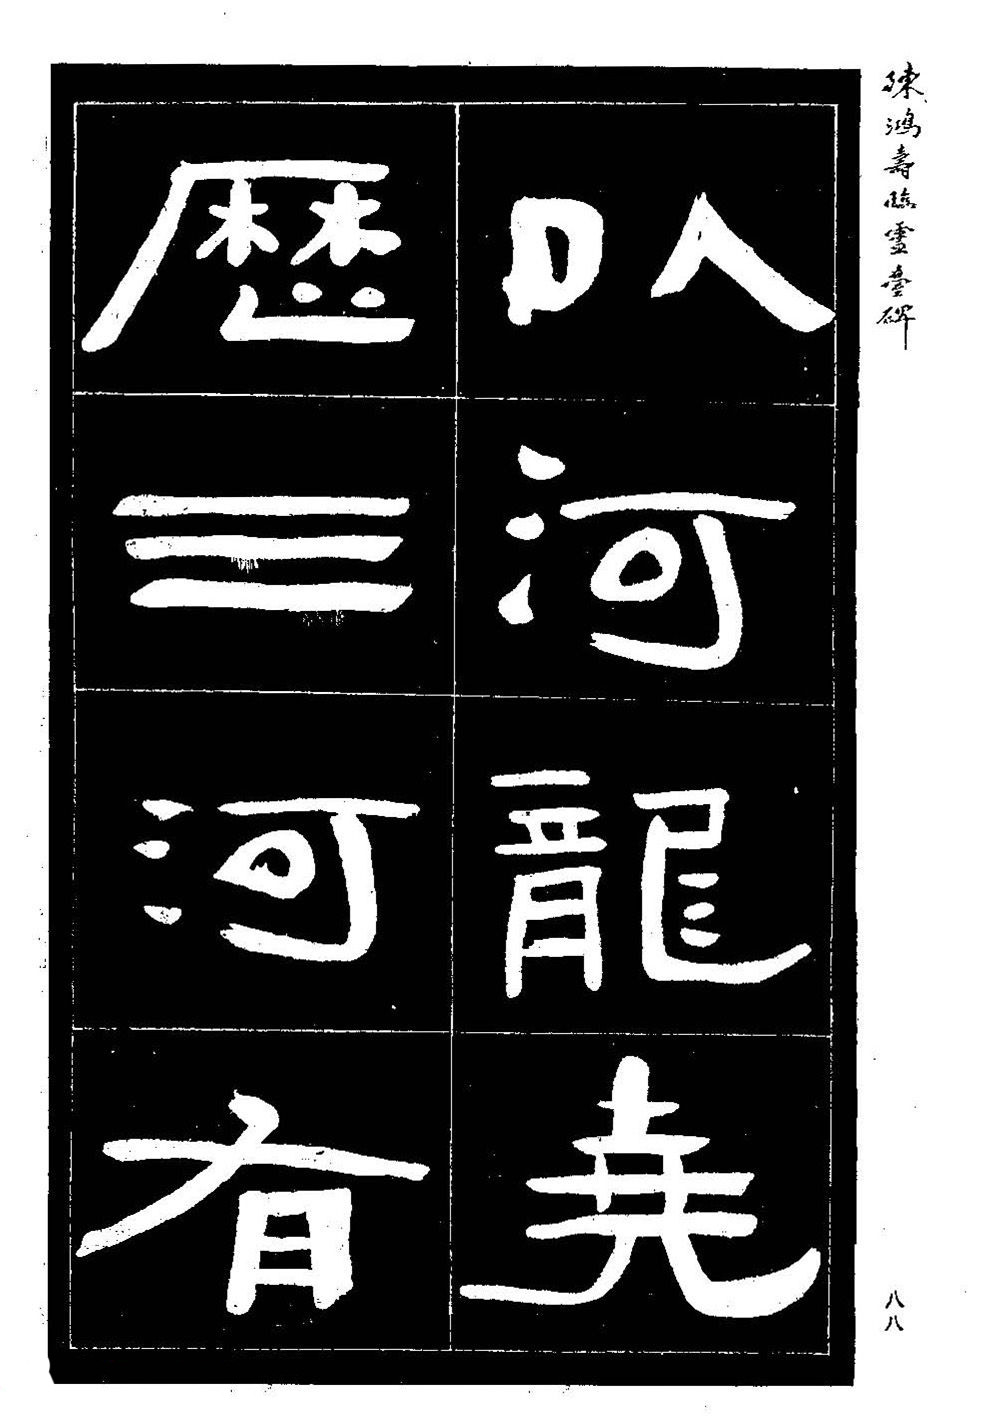 陳鴻壽臨靈臺碑
以河龍堯
歷三河有
八八